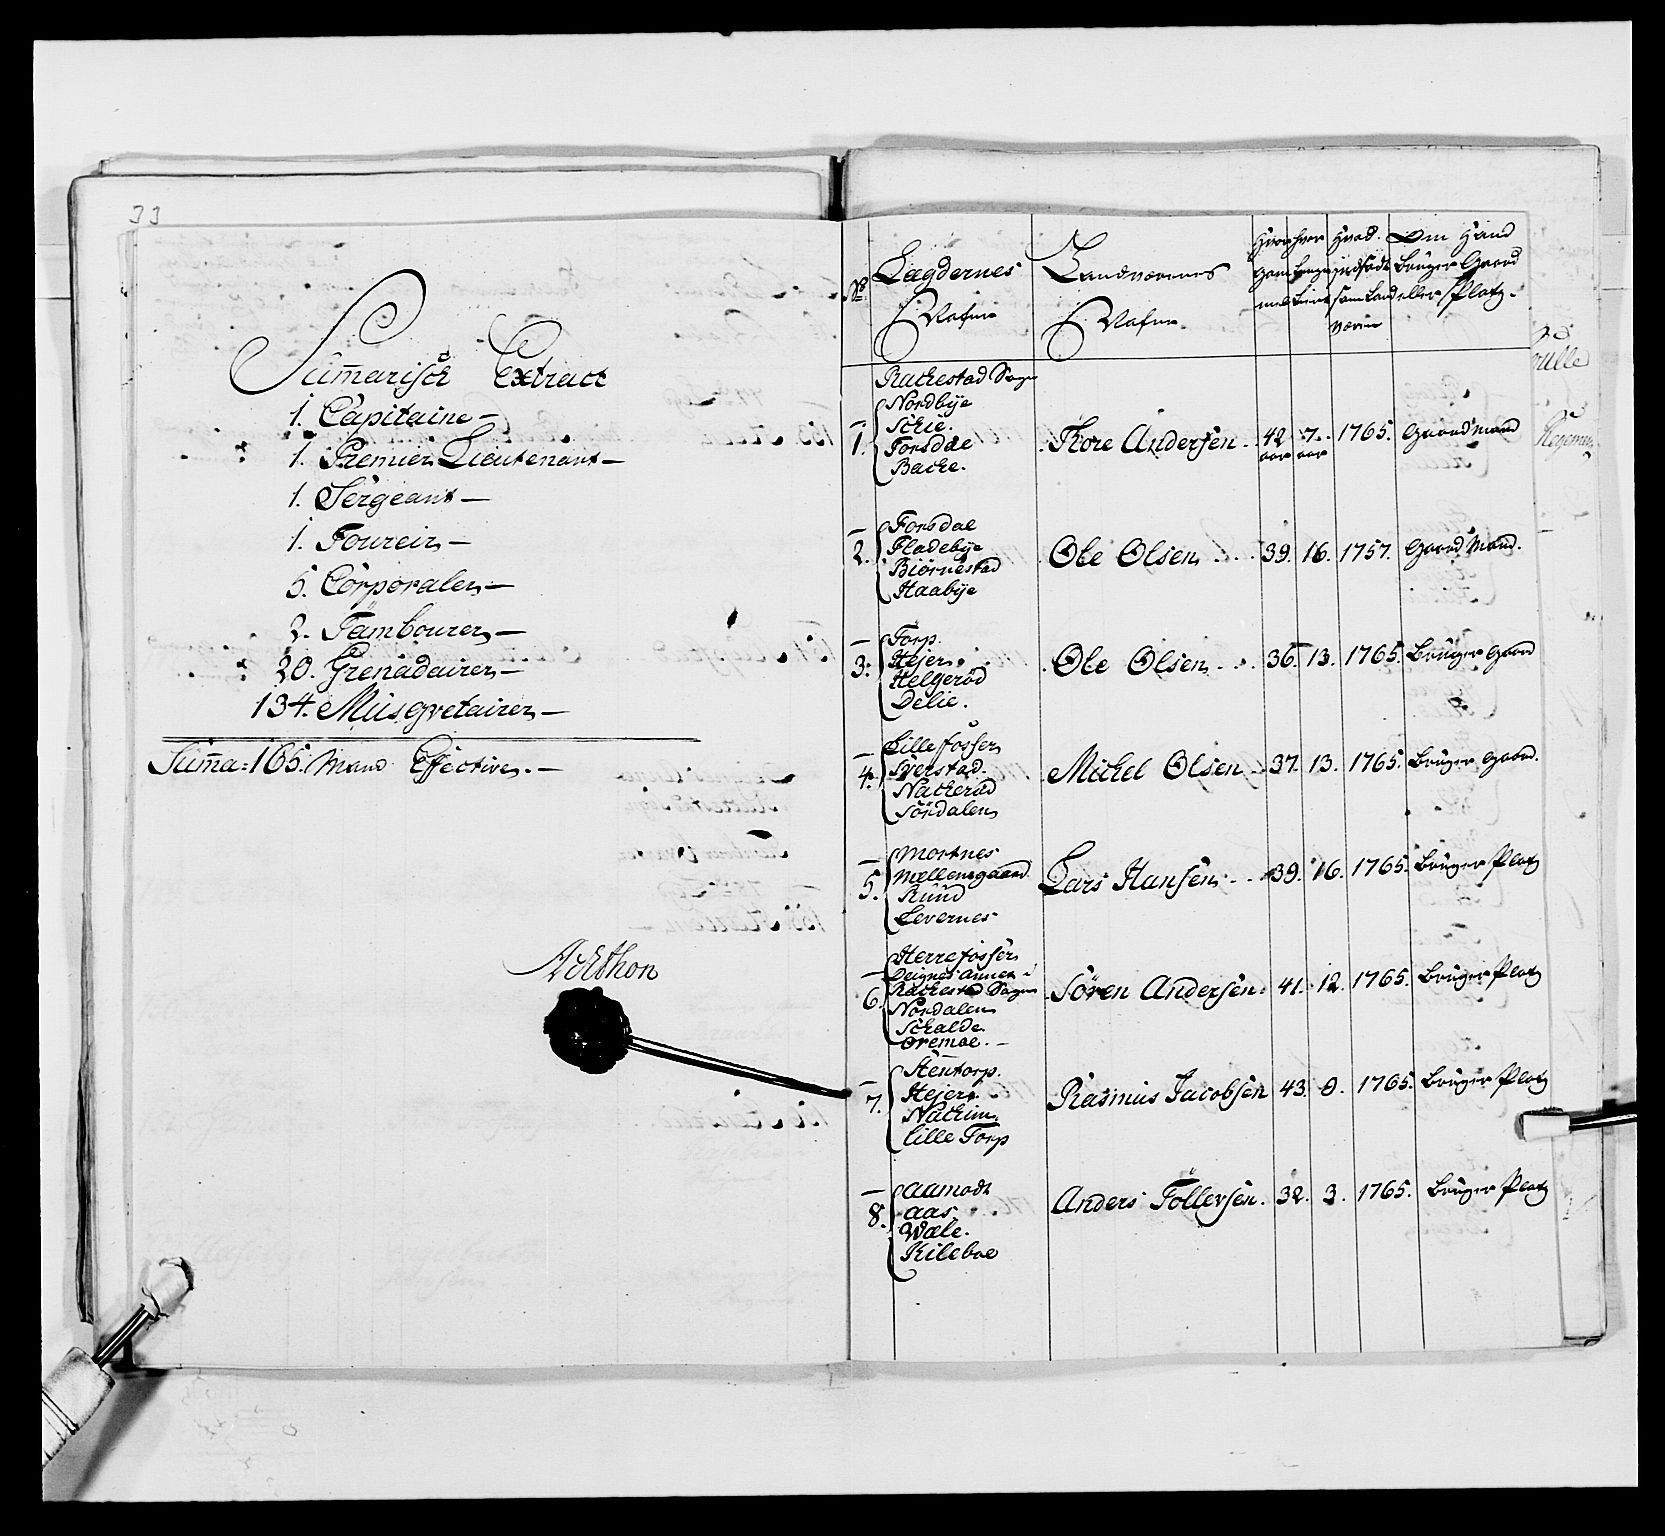 33
Summarisch Extract
1. Capitaine —
1. Premier Lieutenant —
1. Sergeant —
1. Foureir —
5. Corporaler —
2. Tambourer —
20. Grenadairer —
134. Musqvetairer —
Summa: 165. Mand Effective. —
N: Ethon
No
Lægdernes Nafne
Landværnes Nafne
Hvor gammel
Hvor lenge tient
Hvad. indsadt som Land værn
Om Hand bruger Gaard eller Platz.
Rackestad Sogn
1. Nordbye
Schie.
Forsdal
Backe.
Thore Andersen. 42 aar 7. aar 1765. Gaardmand
2. Forsdal
Fladebye
Biörnestad
Haabye
Ole Olsen 39. 16. 1757. Gaard Mand.
3. Torp.
Hejer.
Helgeröd
Delie.
Ole Olsen 36. 13. 1765. Bruger Gaard
4. Lillefosser
Syerstad.
Nackeröd
Sördalen
Michel Olsen 37. 13. 1765. Bruger Gaard.
5. Mortnes
Mellemgaard
Ruud
Levernes
Lars Hansen 39. 16. 1765. Bruger Platz
6. Herrefosser
Deignes annex i
Rackestad Sogn
Nordalen
Schalde
Oremoe. —
Sören Andersen. 41. 12. 1765. Bruger Platz
7. Stentorp.
Hejer
Nackim
Lille Torp
Rasmus Jacobsen 43. 9. 1765. Bruger Platz
8. Aamodt
Aas
Wale.
Kileboe
Anders Tollersen. 32. 3. 1765. Bruger Platz
rulle